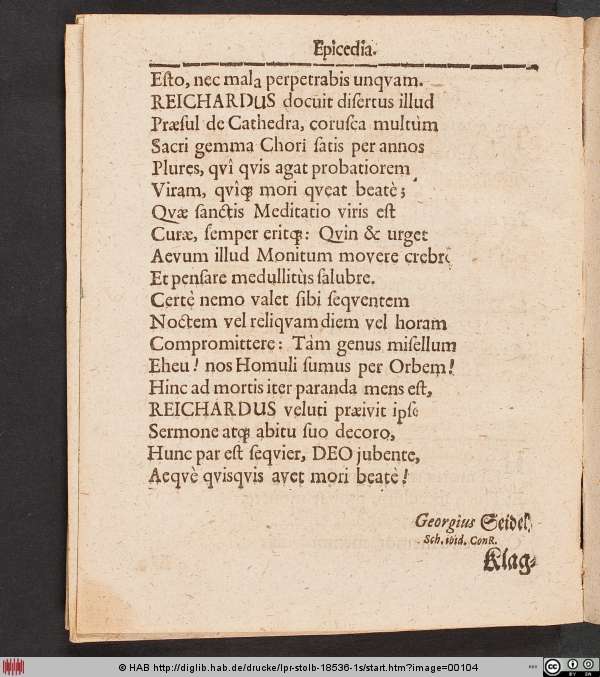 Epicedia.
Eſto, nec mala perpetrabis unqvam.
REICHARDUS docuit diſertus illud
Præſul de Cathedra, coruſca multùm
Sacri gemma Chori ſatis per annos
Plures, qvî qvis agat probatiorem
Viram, qvîqꝫ mori qveat beatè;
Qvæ ſanctis Meditatio viris eſt
Curæ, ſemper eritqꝫ: Qvin & urget
Aevum illud Monitum movere crebrò
Et penſare medullitùs ſalubre.
Certè nemo valet ſibi ſeqventem
Noctem vel reliqvam diem vel horam
Compromittere: Tàm genus miſellum
Eheu! nos Homuli ſumus per Orbem!
Hinc ad mortis iter paranda mens eſt,
REICHARDUS veluti præivit ipſe
Sermone atqꝫ abitu ſuo decoro,
Hunc par eſt ſeqvier, DEO jubente,
Aeqvè qvisqvis avet mori beatè!
Georgius Seidel,
Sch. ibid. ConR.
Klag-
© HAB http://diglib.hab.de/drucke/lpr-stolb-18536-1s/start.htm?image=00104